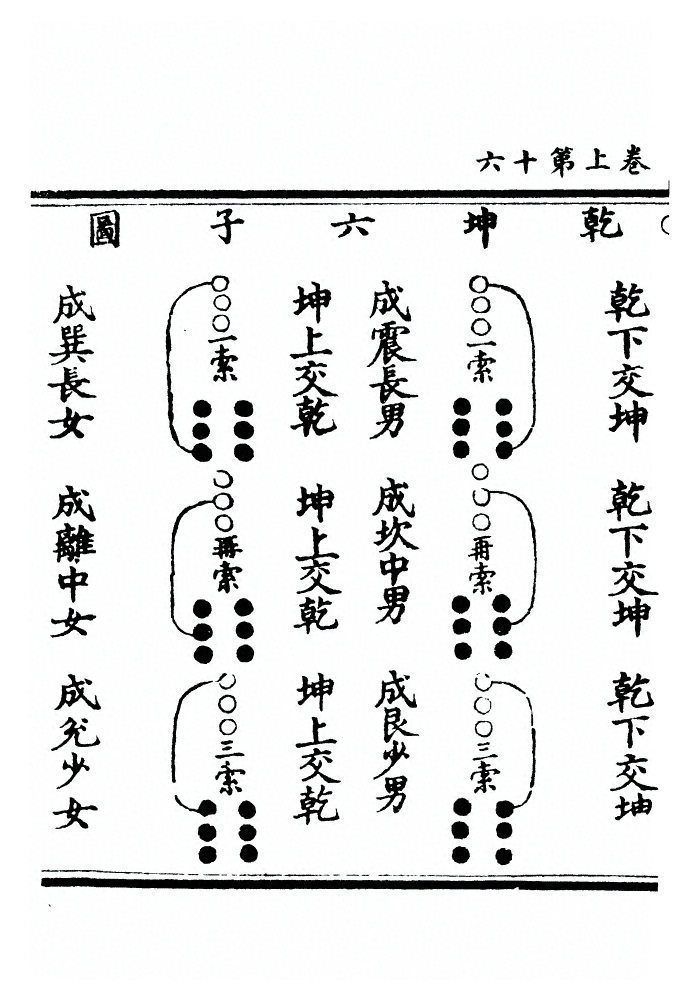 卷上第十六
乾坤六子圖
乾下交坤
一索
成震長男
坤上交乾
一索
成巽長女
乾下交坤
再索
成坎中男
坤上交乾
再索
成離中女
乾下交坤
三索
成艮少男
坤上交乾
三索
成兊少女